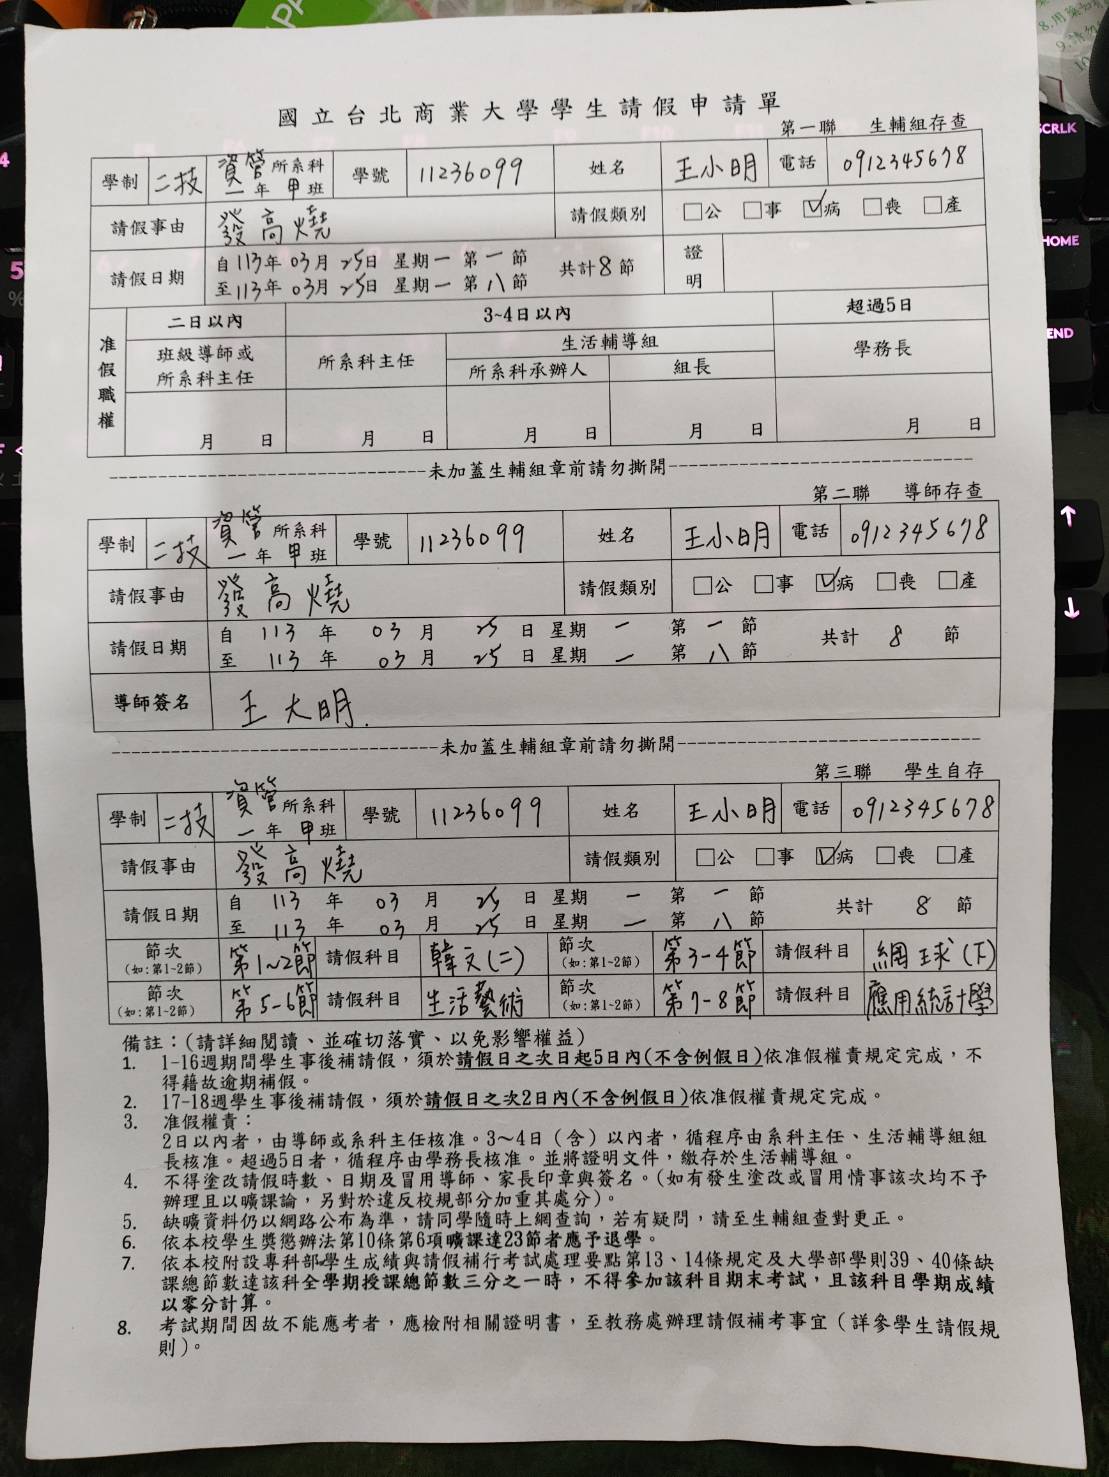 國立台北商業大學學生請假申請單
第一聯 生輔組存查
學制 二技 資管所系科 一年甲班 學號 11236099 姓名 王小明 電話 0912345678
請假事由 發高燒 請假類別 □公 □事 ☑病 □喪 □產
請假日期 自113年03月25日 星期一 第一節 至113年03月25日 星期一 第八節 共計8節 證明
准假職權 二日以內 3~4日以內 超過5日
班級導師或所系科主任 所系科主任 生活輔導組 學務長
所系科承辦人 組長
月 日 月 日 月 日 月 日 月 日
未加蓋生輔組章前請勿撕開
第二聯 導師存查
學制 二技 資管所系科 一年甲班 學號 11236099 姓名 王小明 電話 0912345678
請假事由 發高燒 請假類別 □公 □事 ☑病 □喪 □產
請假日期 自 113 年 03 月 25 日 星期 一 第 一 節 共計 8 節
至 113 年 03 月 25 日 星期 一 第 八 節
導師簽名 王大明.
未加蓋生輔組章前請勿撕開
第三聯 學生自存
學制 二技 資管所系科 一年甲班 學號 11236099 姓名 王小明 電話 0912345678
請假事由 發高燒 請假類別 □公 □事 ☑病 □喪 □產
請假日期 自 113 年 03 月 25 日 星期 一 第 一 節 共計 8 節
至 113 年 03 月 25 日 星期 一 第 八 節
節次(如:第1~2節) 第1~2節 請假科目 韓文(二) 節次(如:第1~2節) 第3-4節 請假科目 網球(下)
節次(如:第1~2節) 第5-6節 請假科目 生活藝術 節次(如:第1~2節) 第7-8節 請假科目 應用統計學
備註:(請詳細閱讀、並確切落實、以免影響權益)
1. 1-16週期間學生事後補請假,須於請假日之次日起5日內(不含例假日)依准假權責規定完成,不
得藉故逾期補假。
2. 17-18週學生事後補請假,須於請假日之次2日內(不含例假日)依准假權責規定完成。
3. 准假權責:
2日以內者,由導師或系科主任核准。3~4日(含)以內者,循程序由系科主任、生活輔導組組
長核准。超過5日者,循程序由學務長核准。並將證明文件,繳存於生活輔導組。
4. 不得塗改請假時數、日期及冒用導師、家長印章與簽名。(如有發生塗改或冒用情事該次均不予
辦理且以曠課論,另對於違反校規部分加重其處分)。
5. 缺曠資料仍以網路公布為準,請同學隨時上網查詢,若有疑問,請至生輔組查對更正。
6. 依本校學生獎懲辦法第10條第6項曠課達23節者應予退學。
7. 依本校附設專科部學生成績與請假補行考試處理要點第13、14條規定及大學部學則39、40條缺
課總節數達該科全學期授課總節數三分之一時,不得參加該科目期末考試,且該科目學期成績
以零分計算。
8. 考試期間因故不能應考者,應檢附相關證明書,至教務處辦理請假補考事宜(詳參學生請假規
則)。
SCRLK
HOME
END